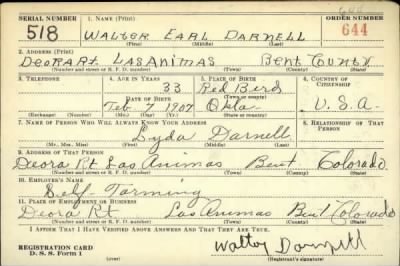 SERIAL NUMBER 1. NAME (Print) ORDER NUMBER
518 WALTER EARL DARNELL 644
(First) (Middle) (Last)
2. ADDRESS (Print)
DEORA Rt LAS ANIMAS Bent County
(Number and street or R. F. D. number) (Town) (County) (State)
3. TELEPHONE 4. AGE IN YEARS 5. PLACE OF BIRTH 6. COUNTRY OF CITIZENSHIP
33 Red Bird
DATE OF BIRTH (Town or county)
Feb 7 1907 Okla U.S.A.
(Exchange) (Number) (Mo.) (Day) (Yr.) (State or country)
7. NAME OF PERSON WHO WILL ALWAYS KNOW YOUR ADDRESS 8. RELATIONSHIP OF THAT PERSON
Lyda Darnell
(Mr., Mrs., Miss) (First) (Middle) (Last)
9. ADDRESS OF THAT PERSON
Deora Rt Las Animas Bent Colorado
(Number and street or R. F. D. number) (Town) (County) (State)
10. EMPLOYER'S NAME
Self Farming
11. PLACE OF EMPLOYMENT OR BUSINESS
Deora Rt Las Animas Bent Colorado
(Number and street or R. F. D. number) (Town) (County) (State)
I AFFIRM THAT I HAVE VERIFIED ABOVE ANSWERS AND THAT THEY ARE TRUE.
REGISTRATION CARD
D. S. S. Form 1 Walter Darnell
(Registrant's signature)